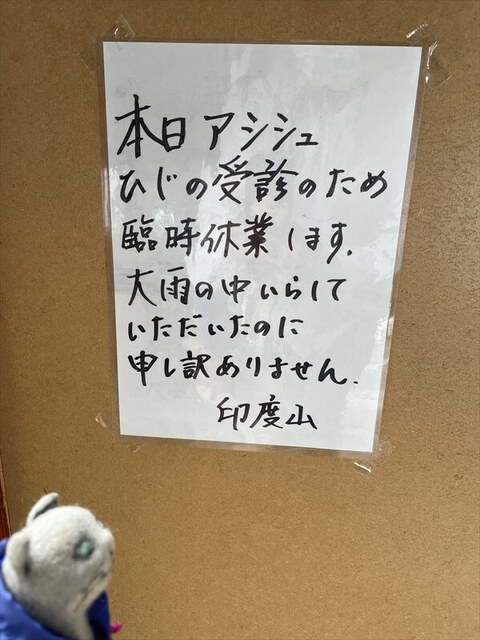 本日アシシュ
ひじの受診のため
臨時休業します.
大雨の中いらして
いただいたのに
申し訳ありません.
印度山